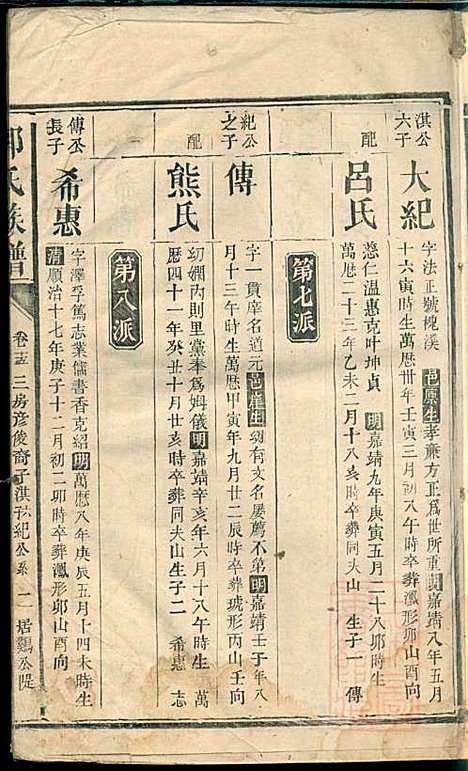 淇公
六子
大紀
字法正號槐溪 邑廩生孝亷方正爲世所重明嘉靖八年五月
十六寅時生萬暦卅年壬寅三月初八卯時卒葬㶚形卯山酉向
配
呂氏
慈仁温惠克叶坤貞 明嘉靖九年庚寅五月二十八卯時生
萬暦二十三年乙未二月十八亥時卒葬同夫山 生子一 傳
第七派
紀公
之子
傳
字一貫庠名道元邑增生幼有文名屡薦不第明嘉靖壬子年八
月十三午時生萬暦甲寅年九月廿二辰時卒葬琥形丙山壬向
配
熊氏
幼嫻內則里黨奉爲姆儀明嘉靖辛亥年六月十八午時生 萬
暦四十一年癸丑十月廿亥時卒葬同夫山生子二 希惠 志
第八派
傅公
長子
希惠
字澤孚篤志業儒書香克紹明萬暦八年庚辰五月十四未時生
清順治十七年庚子十二月初二卯時卒葬㶚形卯山酉向
氏族譜
卷 三房彦俊裔子淇六紀公系 二 居鸛公隄